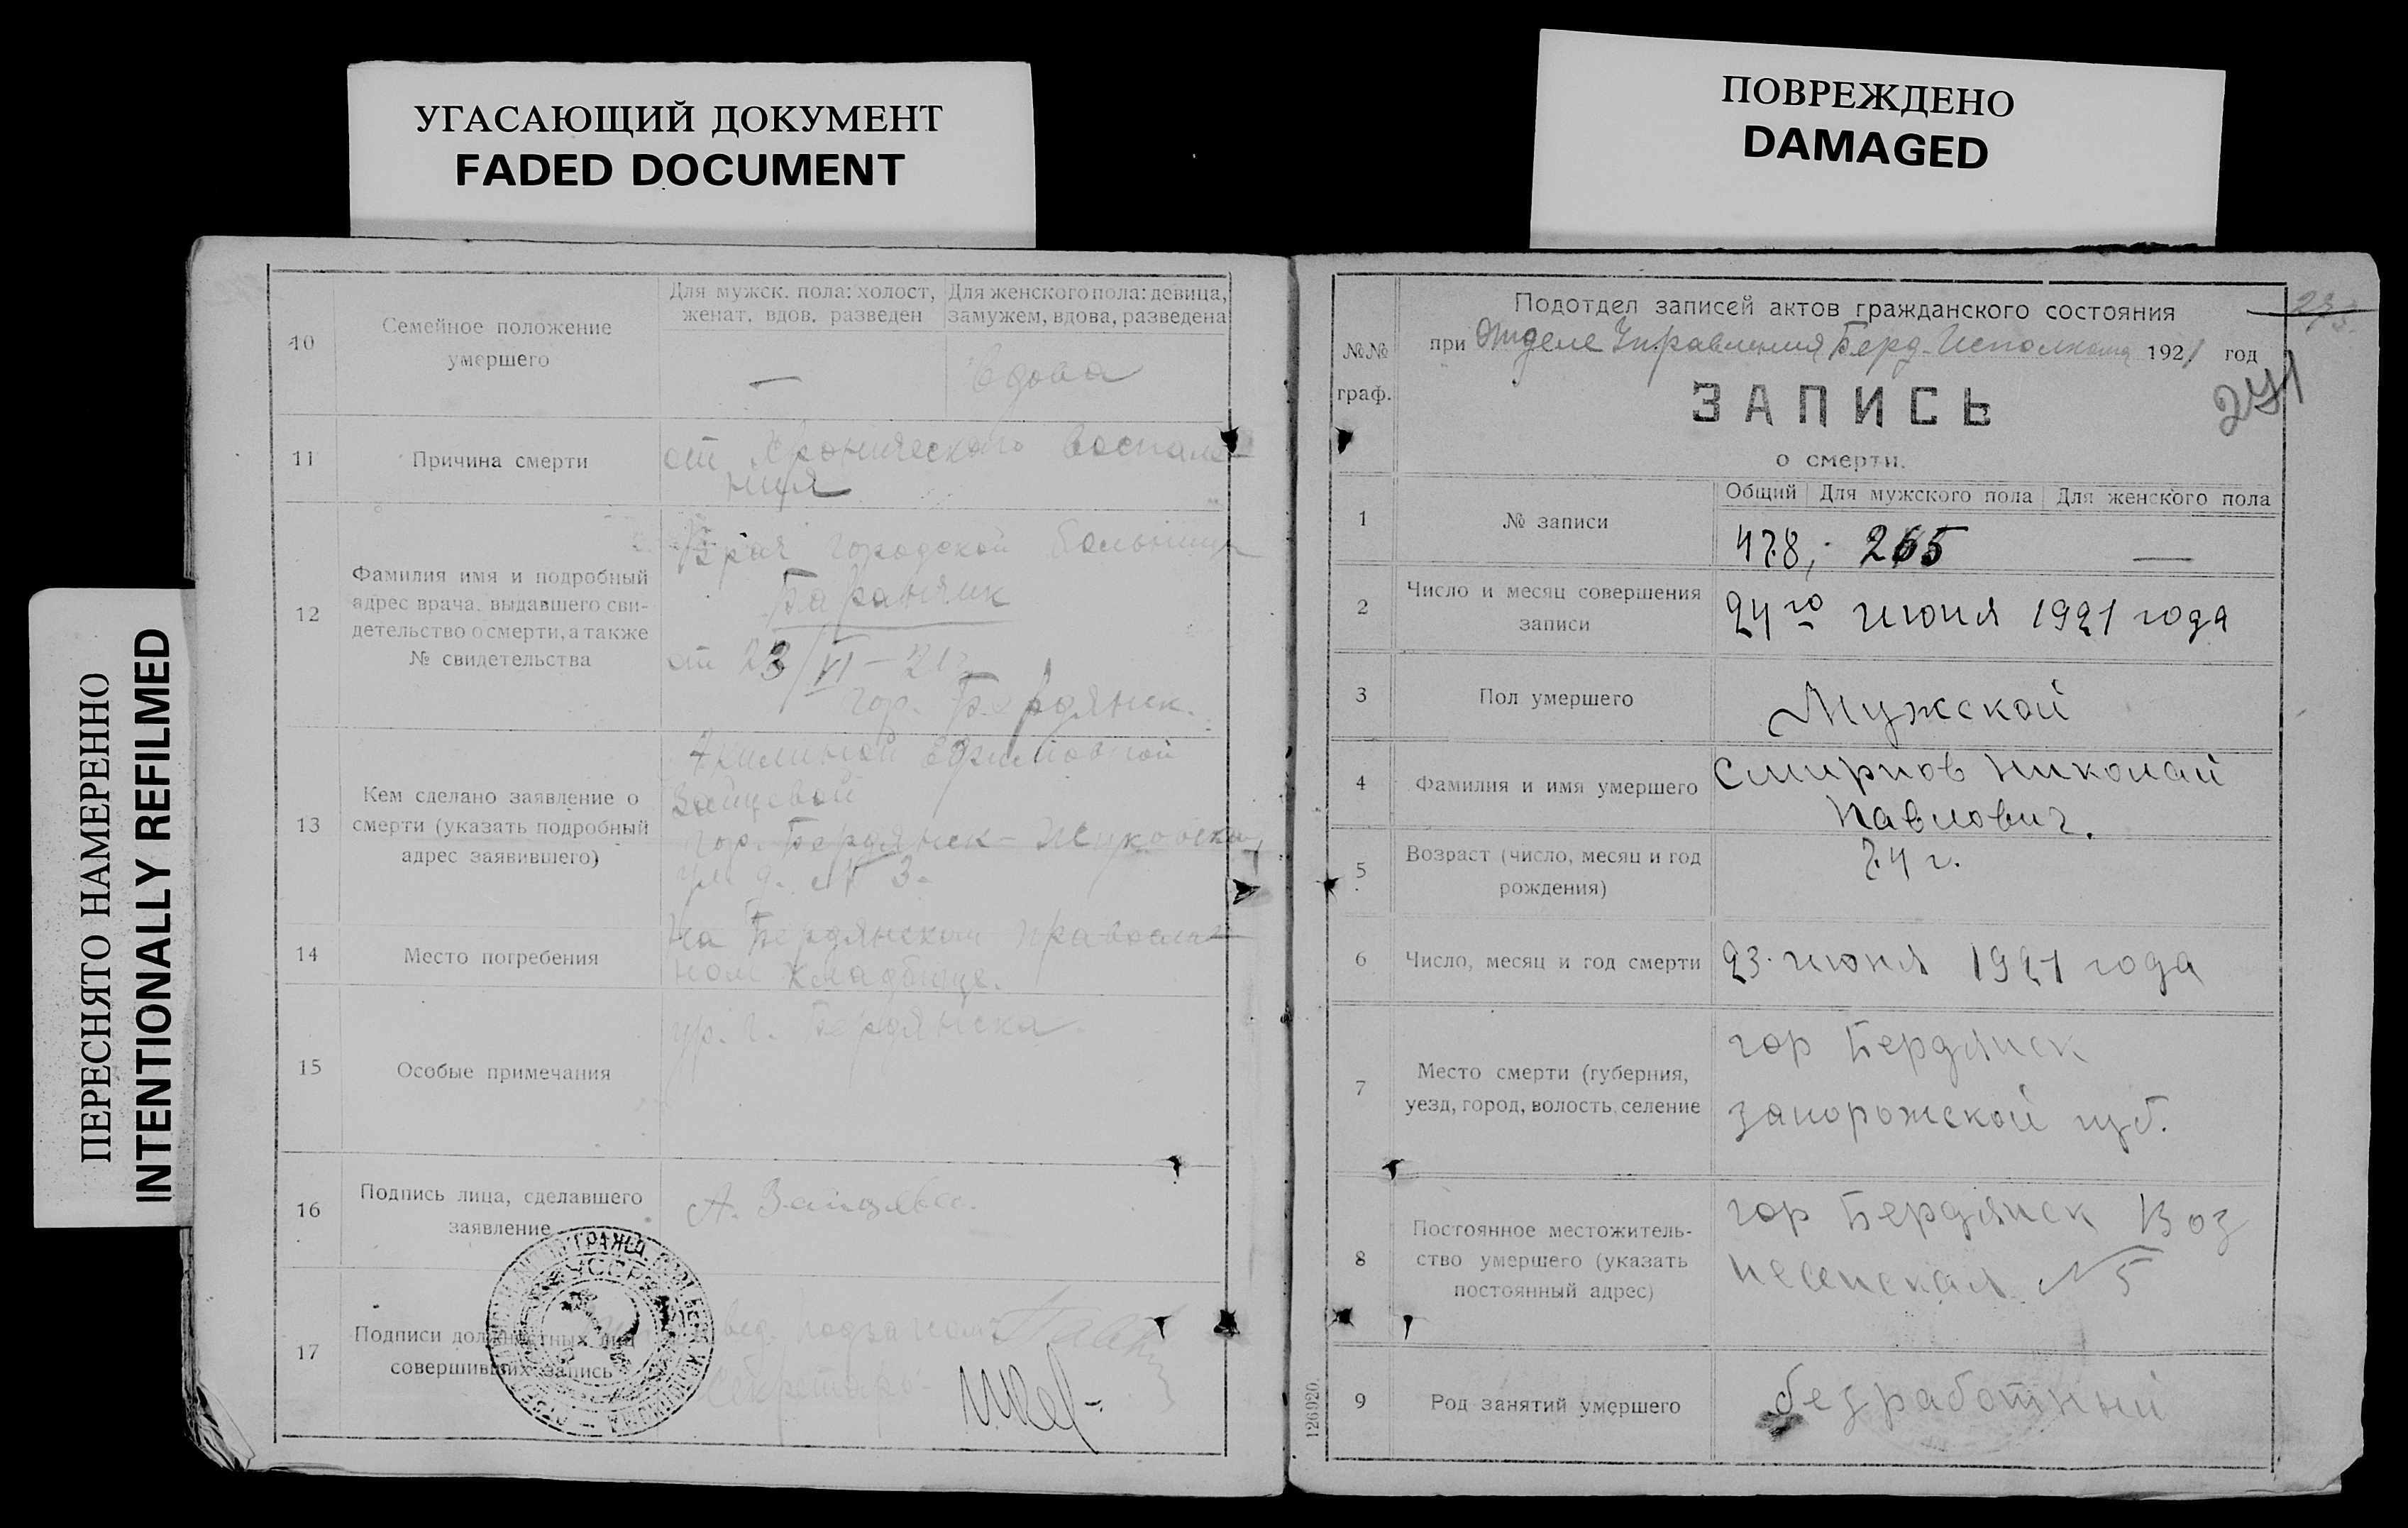 УГАСАЮЩИЙ ДОКУМЕНТ
FADED DOCUMENT
ПОВРЕЖДЕНО
DAMAGED
ПЕРЕСНЯТО НАМЕРЕННО
INTENTIONALLY REFILMED
10
Семейное положение
умершего
Для мужск. пола: холост,
женат, вдов, разведен
Для женского пола: девица,
замужем, вдова, разведена
—
Вдова
11
Причина смерти
от хронического воспале-
ния
12
Фамилия имя и подробный
адрес врача, выдавшего сви-
детельство о смерти, а также
№ свидетельства
Врач городской больницы
от 23/VI – 21 г.
гор. Бердянск.
13
Кем сделано заявление о
смерти (указать подробный
адрес заявившего)
Ефимовной
Зайцевой
гор. Бердянск –
ул. д. № 3.
14
Место погребения
На Бердянском православ-
ном кладбище.
15
Особые примечания
гр. г. Бердянска.
16
Подпись лица, сделавшего
заявление
А. Зайцева.
17
Подписи должностных лиц
совершивших запись
Секретарь
№№
граф.
Подотдел записей актов гражданского состояния
при Отделе Управления Берд. Исполкома 1921 год
271
ЗАПИСЬ
о смерти.
1
№ записи
Общий
Для мужского пола
Для женского пола
478, 265 —
2
Число и месяц совершения
записи
24го июня 1921 года
3
Пол умершего
Мужской
4
Фамилия и имя умершего
Смирнов Николай
Павлович.
5
Возраст (число, месяц и год
рождения)
74 г.
6
Число, месяц и год смерти
23 июня 1921 года
7
Место смерти (губерния,
уезд, город, волость, селение
гор Бердянск
Запорожской губ.
8
Постоянное местожитель-
ство умершего (указать
постоянный адрес)
гор Бердянск Воз
несенская № 5
9
Род занятий умершего
безработный
126920.